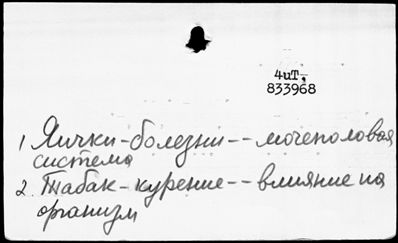 4иТ.
833968
1 Яички-болезни--мочеполовая
система
2. Табак-курение--влияние на
организм